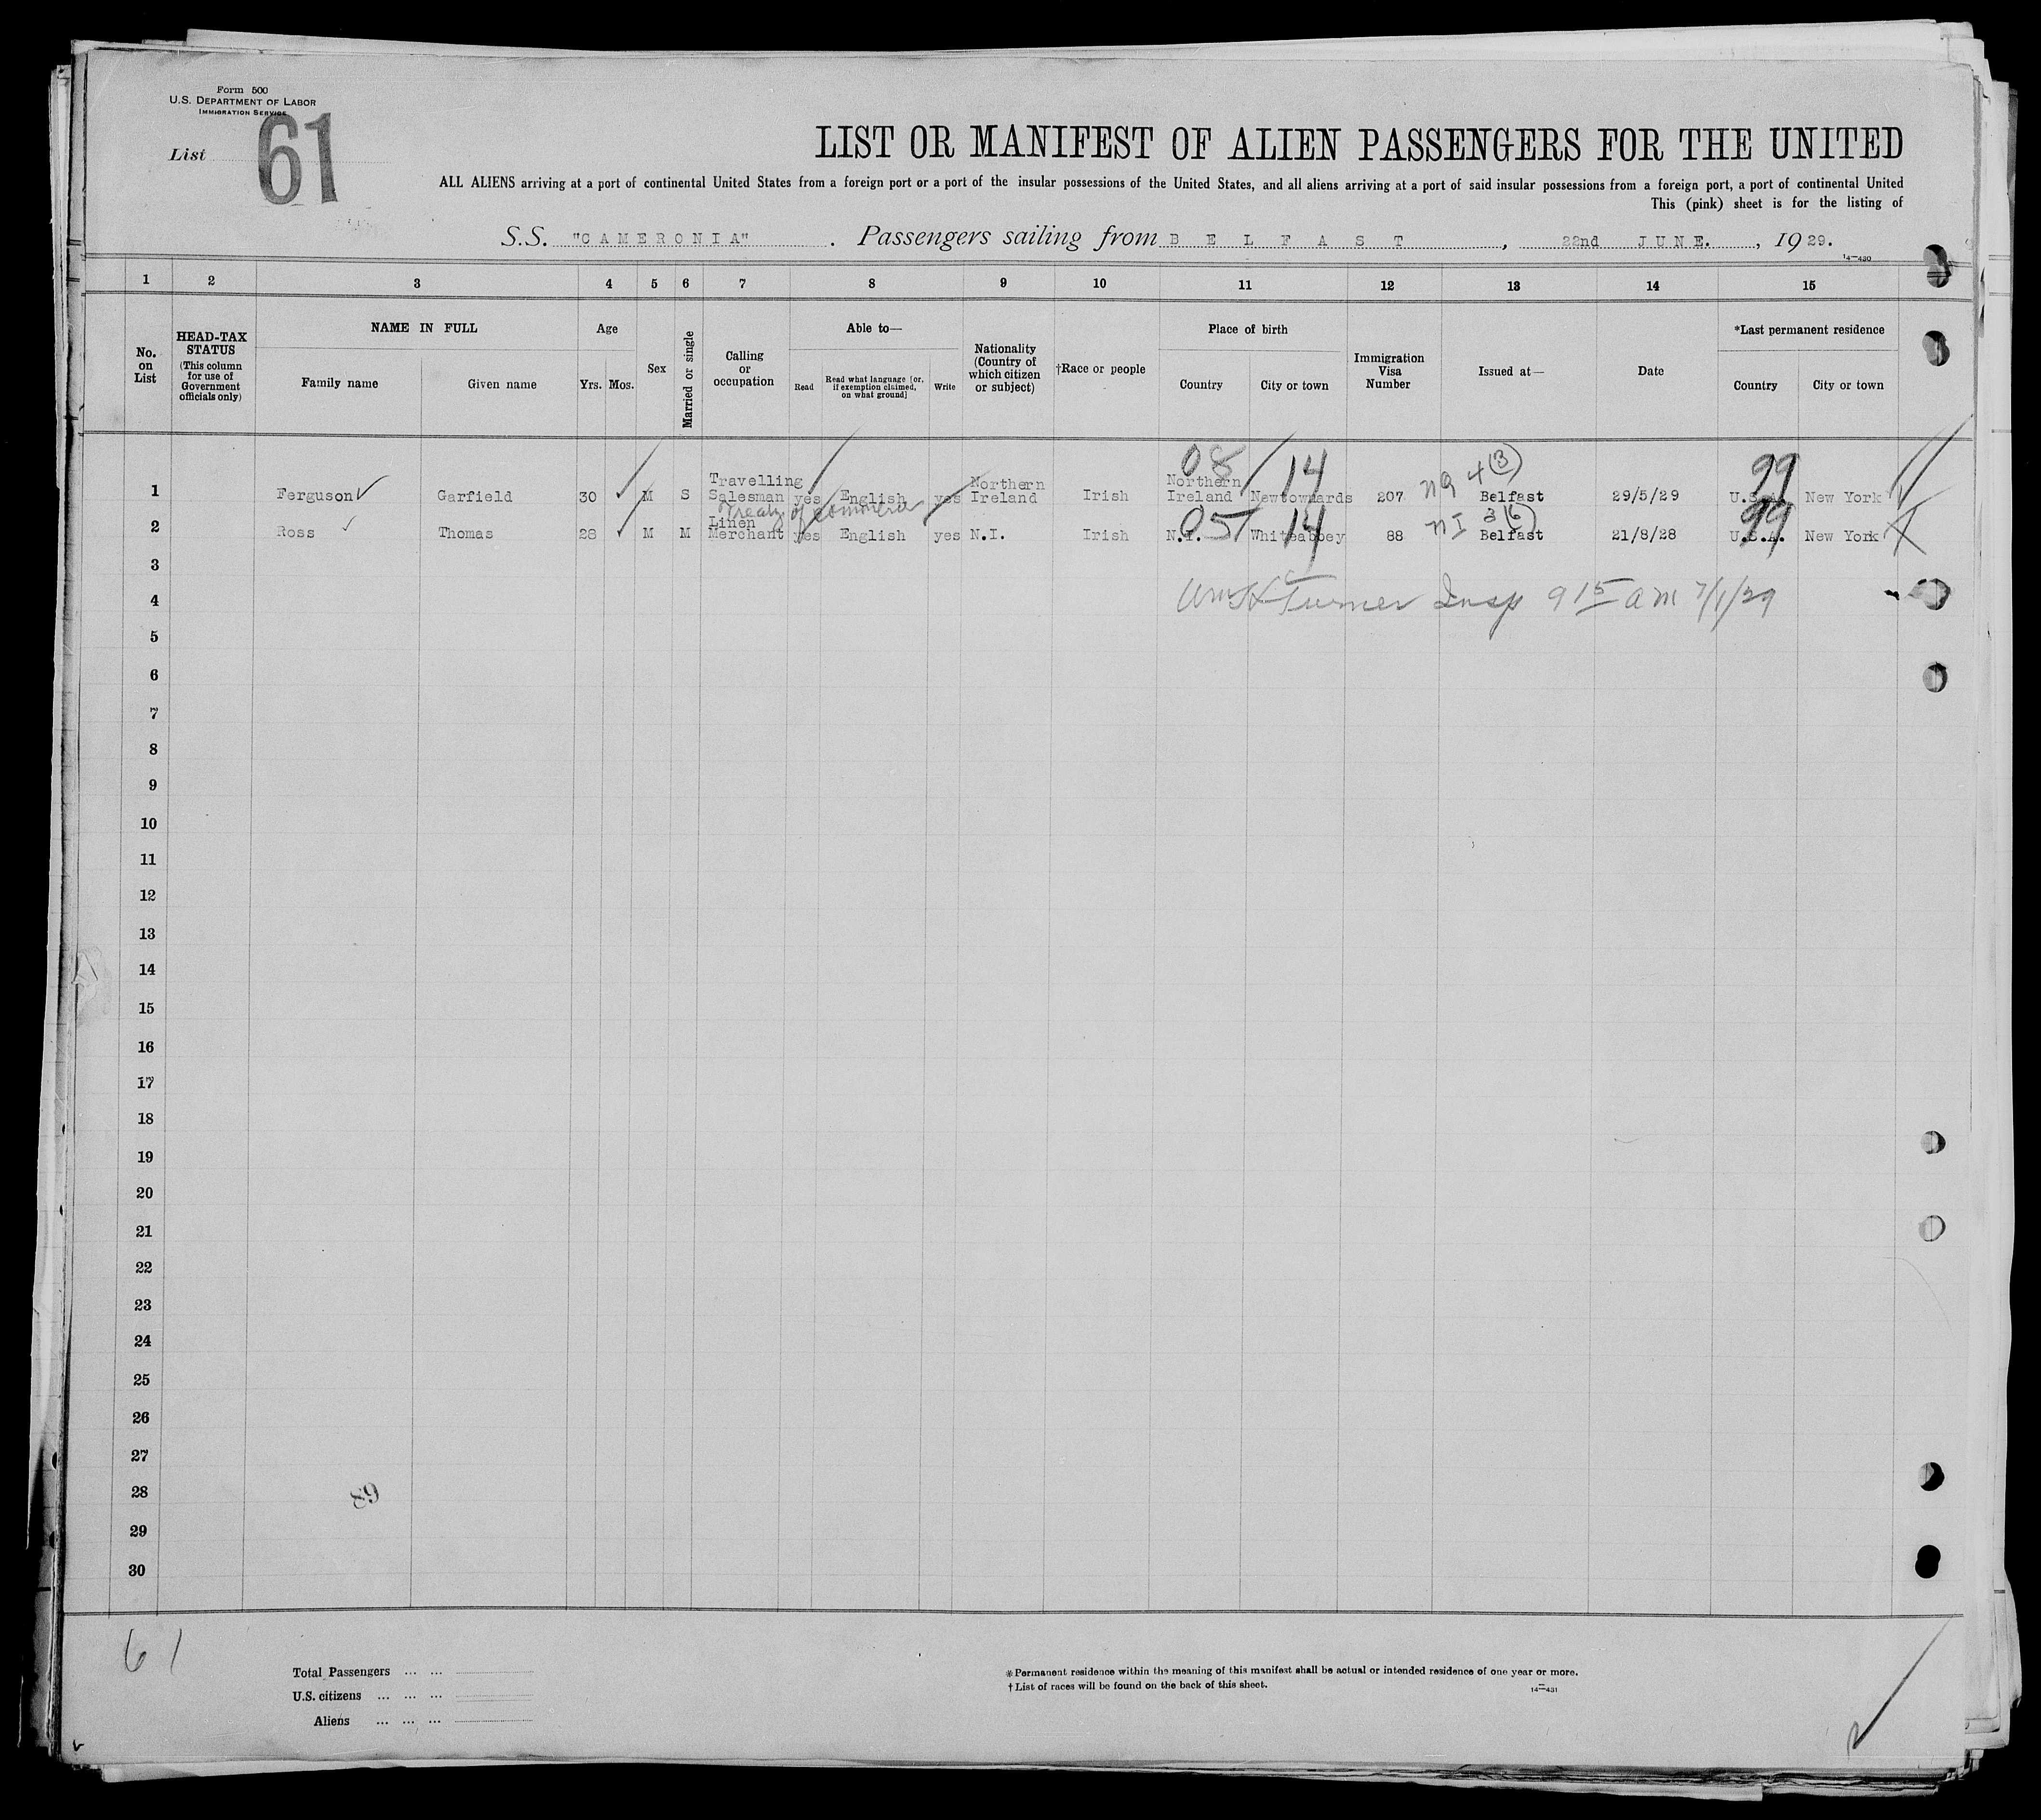 Form 500
U.S. DEPARTMENT OF LABOR
IMMIGRATION SERVICE
List 61
LIST OR MANIFEST OF ALIEN PASSENGERS FOR THE UNITED
ALL ALIENS arriving at a port of continental United States from a foreign port or a port of the insular possessions of the United States, and all aliens arriving at a port of said insular possessions from a foreign port, a port of continental United
This (pink) sheet is for the listing of
S.S. "CAMERONIA" . Passengers sailing from BELFAST, 22nd JUNE., 1929.
14—430
1 2 3 4 5 6 7 8 9 10 11 12 13 14 15
No. on List
HEAD-TAX STATUS (This column for use of Government officials only)
NAME IN FULL
Family name Given name
Age
Yrs. Mos.
Sex
Married or single
Calling or occupation
Able to—
Read
Read what language [or, if exemption claimed, on what ground]
Write
Nationality (Country of which citizen or subject)
†Race or people
Place of birth
Country City or town
Immigration Visa Number
Issued at—
Date
*Last permanent residence
Country City or town
08 14 NQ 4 (3) 99
1 Ferguson Garfield 30 M S Travelling Salesman yes English yes Northern Ireland Irish Northern Ireland Newtownards 207 Belfast 29/5/29 U.S.A. New York
Treaty of Commerce
05 14 NI 3 (6) 99
2 Ross Thomas 28 M M Linen Merchant yes English yes N.I. Irish N.I. Whiteabbey 88 Belfast 21/8/28 U.S.A. New York
3
4 Turner Insp 9 15 am 7/1/29
5
6
7
8
9
10
11
12
13
14
15
16
17
18
19
20
21
22
23
24
25
26
27
28 89
29
30
61
Total Passengers ... ...
U.S. citizens ... ... ...
Aliens ... ... ...
*Permanent residence within the meaning of this manifest shall be actual or intended residence of one year or more.
†List of races will be found on the back of this sheet.
14—431